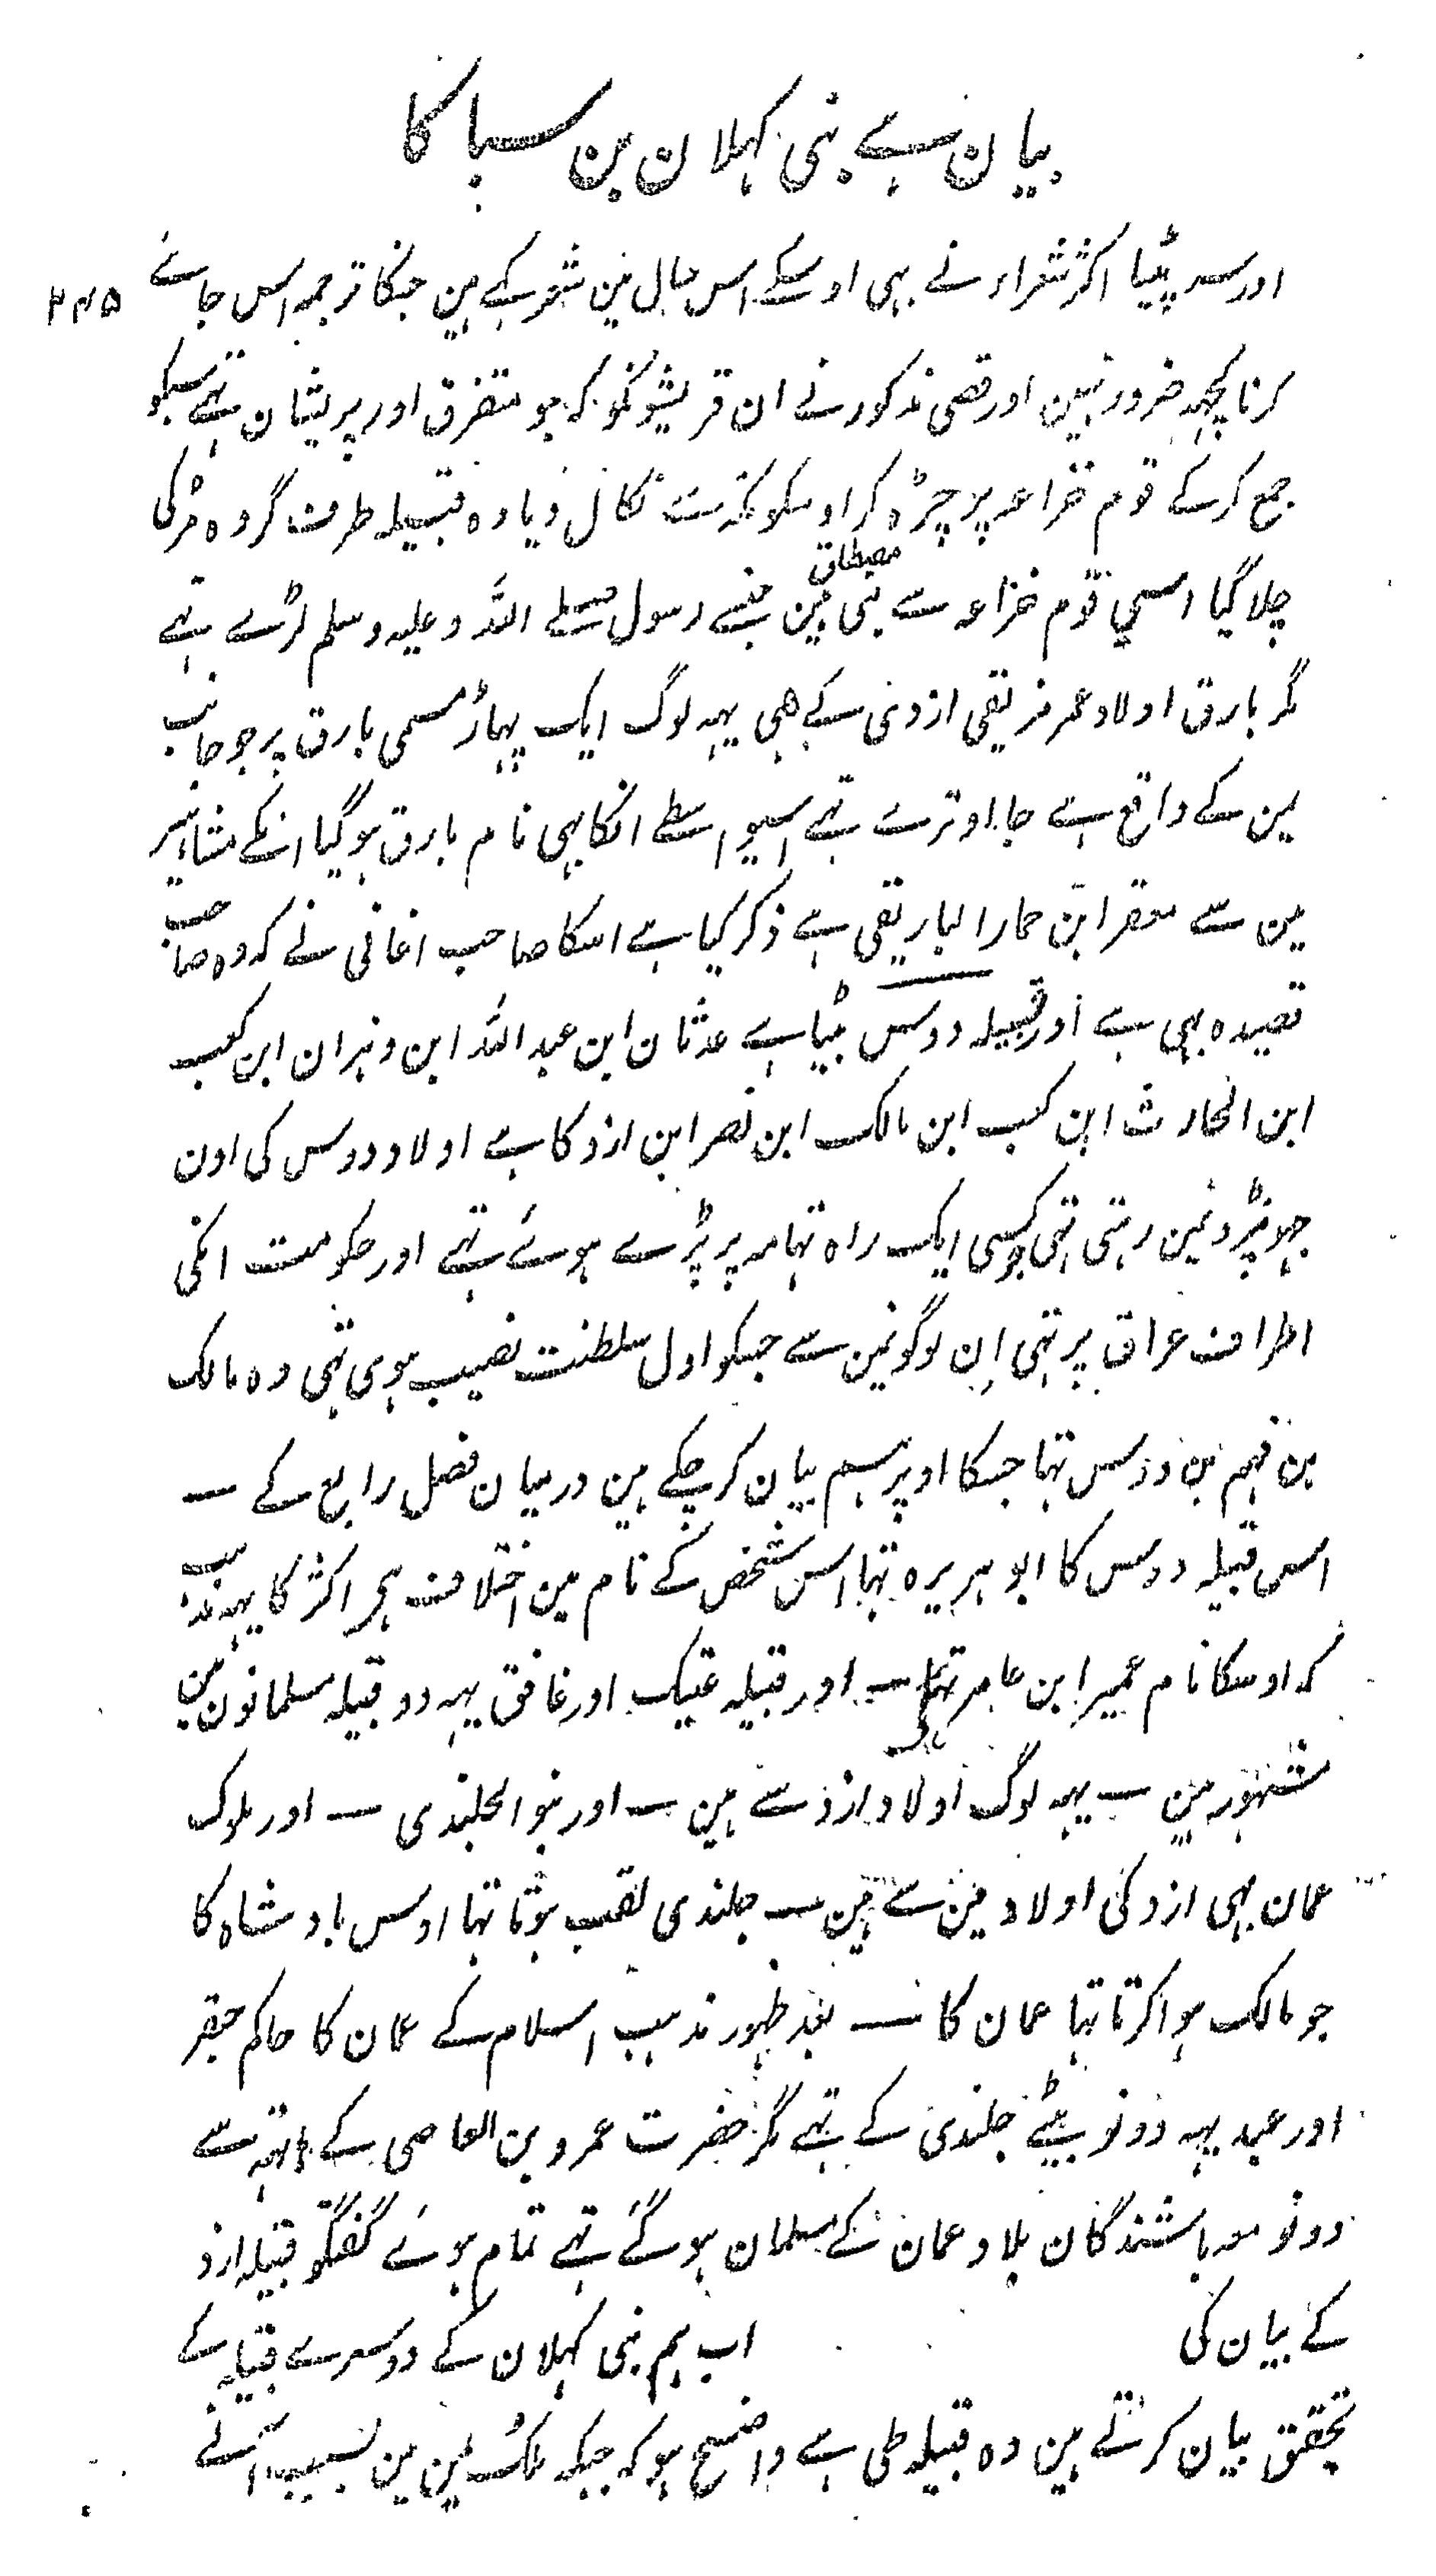 بیان ہے بنی کہلان بن سبا کا
۲۴۵
اور سر پیٹا اکثر شعراء نے بہی اوسکے اس حال مین شعر کہے ہین جنکا ترجمہ اس جائے
کرنا کچہہ ضرور نہین اور قصی مذکور نے ان قریشونکو کہ جو متفرق اور پریشان تہے سبکو
جمع کرکے قوم خزاعہ پر چڑہ کر اوسکو مکہ سے نکال دیا وہ قبیلہ طرف گروہ مر کی
چلا گیا اسی قوم خزاعہ سے بنی مصطلق ہین جنسے رسول صلے اللہ وعلیہ وسلم لڑے تہے
مگر بارق اولاد عمر مزیقی ازدی کے هی یہہ لوگ ایک پہاڑ مسمی بارق پر جو جانب
یمن کے واقع ہے جا اوترے تہے اسیواسطے انکا بہی نام بارق ہوگیا انکے مشاہیر
مین سے معقر ابن حمار البارقی ہے ذکر کیا ہے اسکا صاحب اغانی نے کہ وہ صاحب
قصیدہ بہی ہے اور قبیلہ دوس بیٹا ہے عدثان ابن عبد اللہ ابن وہران ابن کعب
ابن الحارث ابن کعب ابن مالک ابن نصر ابن ازد کا ہے اولاد دوس کی اون
جہونپڑونمین رہتی تہی جو کسی ایک راہ تہامہ پر پڑے ہوئے تہے اور حکومت انکی
اطراف عراق پر تہی ان لوگونمین سے جسکو اول سلطنت نصیب ہوی تہی وہ مالک
بن فہم بن دوس تہا جسکا اوپر ہم بیان کر چکے ہین درمیان فصل رابع کے ــ
اسی قبیلہ دوس کا ابو ہریرہ تہا اس شخص کے نام مین اختلاف ہی اکثر کا یہہ مذہب
کہ اوسکا نام عمیر ابن عامر تہا ــ اور قبیلہ عتیک اور غافق یہہ دو قبیلہ مسلمانون مین
مشہور ہین ــ یہہ لوگ اولاد ازد سے ہین ــ اور بنو الجلندی ــ اور ملوک
عمان بہی ازد کی اولاد مین سے ہین ــ جلندی لقب ہوتا تہا اوس بادشاہ کا
جو مالک ہوا کرتا تہا عمان کا ــ بعد ظہور مذہب اسلام کے عمان کا حاکم جیفر
اور عبد یہہ دونو بیٹے جلندی کے تہے مگر حضرت عمرو بن العاصی کے ہاتہہ سے
دونو معہ باشندگان بلاد عمان کے مسلمان ہوگئے تہے تمام ہوئے گفتگو قبیلہ ازد
کے بیان کی اب ہم بنی کہلان کے دوسرے قبیلہ کے
تحقق بیان کرتے ہین وہ قبیلہ طی ہے واضح ہو کہ جبکہ ملک یمن مین بسبب آنے